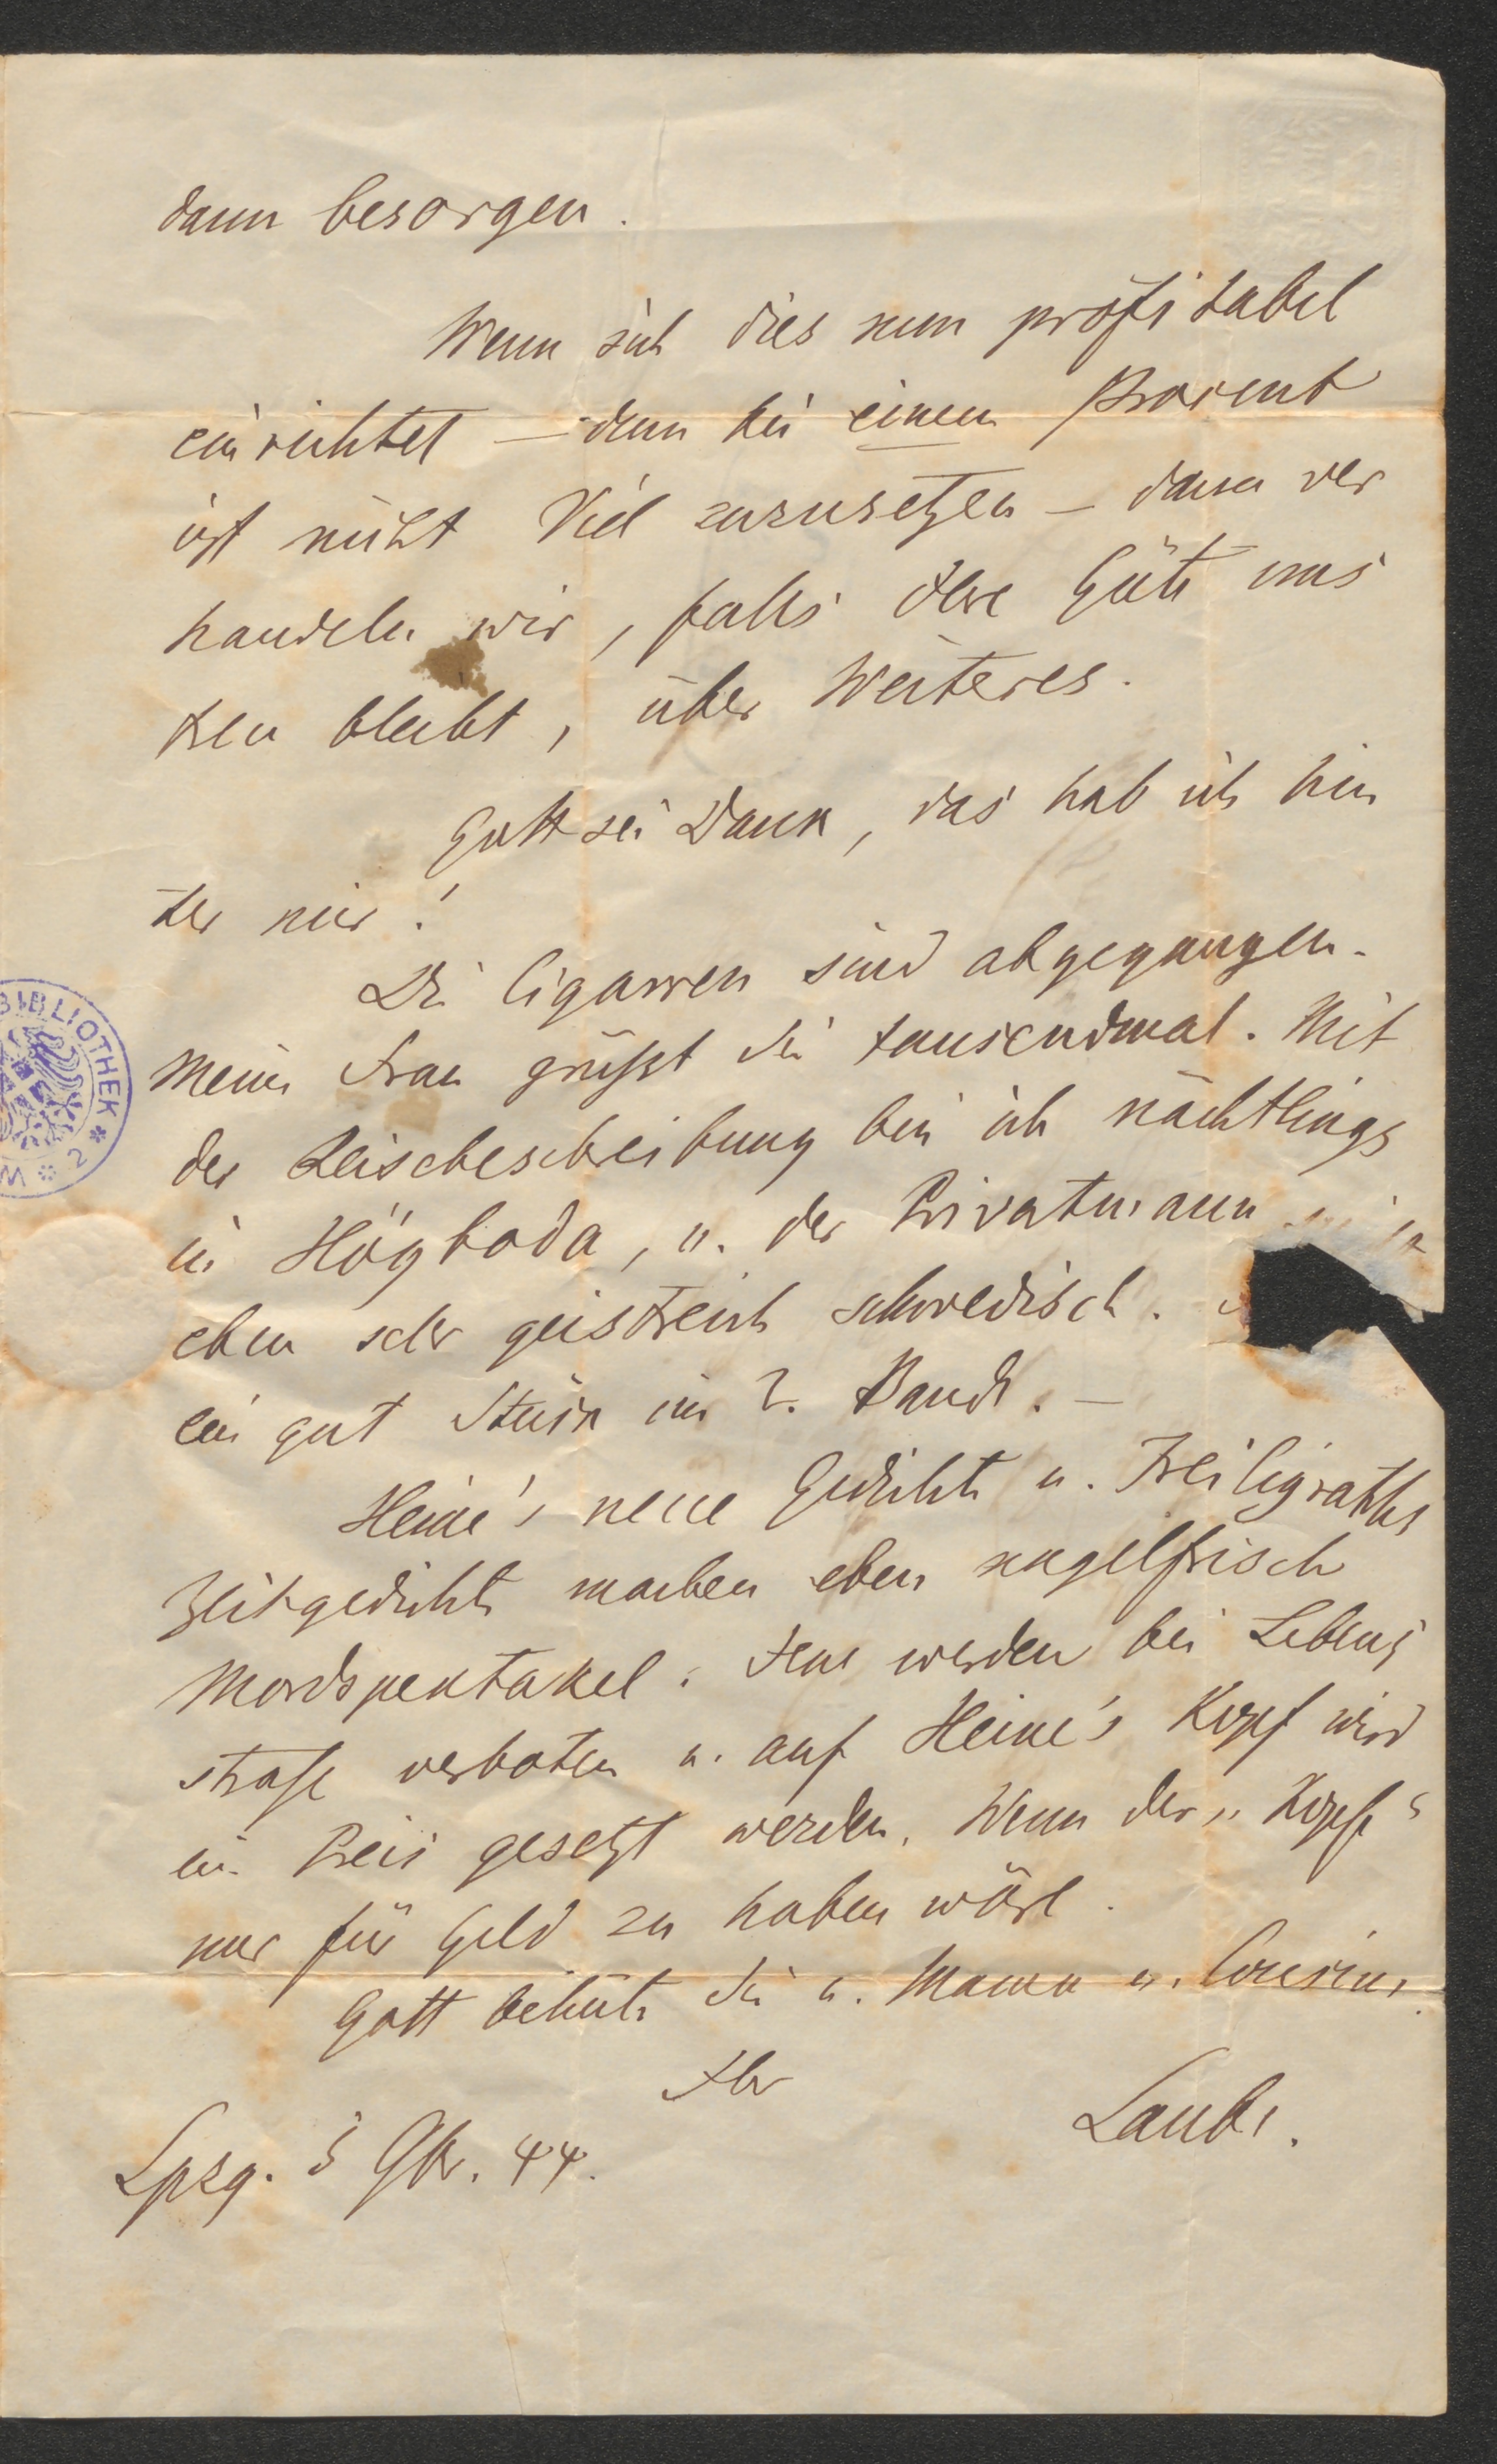 dann besorgen.
Wenn sich dies nun profitabel
einrichtet — denn bei einem Procent
ist nicht Viel zuzusetzen — dann ver
handeln wir, falls Ihre Güte uns
treu bleibt, über Weiteres.
Gott sei Dank, das hab ich hin
ter mir!
Die Cigarren sind abgegangen.
Meine Frau grüßt Sie tausendmal. Mit
der Reisebeschreibung bin ich nächtlings
in Högboda, u. der Privatmann
eben sehr geistreich schwedisch.
ein gut Stück im 2. Bande. —
Heine's neue Gedichte u. Freiligraths
Zeitgedichte machen eben nagelfrisch
Mordspektakel. Jene werden bei Lebens
strafe verboten u. auf Heine's Kopf wird
ein Preis gesetzt werden. Wenn der „Kopf“
nur für Geld zu haben wäre.
Gott behüte Sie u. Mama u. Cousine.
Ihr
Laube.
Lpzg. 5 Obr. 44.
BIBLIOTHEK * 2 * W